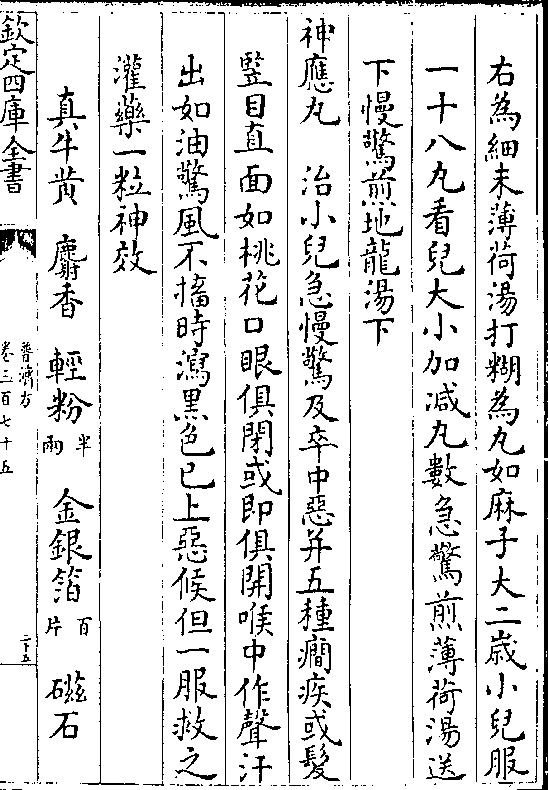 右為細末薄荷湯打糊為丸如麻子大二歲小兒服
一十八丸看兒大小加減丸數急驚煎薄荷湯送
下慢驚煎地龍湯下
神應丸　治小兒急慢驚及卒中惡并五種癇疾或髮
豎目直面如桃花口眼俱閉或即俱開喉中作聲汗
出如油驚風不搐時瀉黑色已上惡候但一服救之
灌藥一粒神效
真牛黄　麝香　輕粉半兩　金銀箔百片　磁石
欽定四庫全書
普濟方
卷三百七十五
二十五